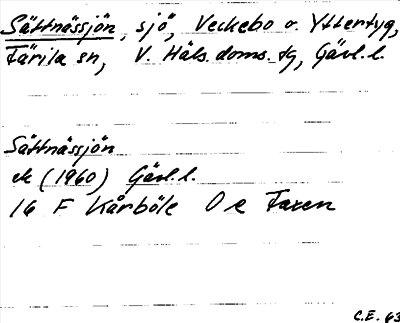 Sättnässjön, sjö, Veckebo o. Yttertyg,
Färila sn, V. Häls. doms. tg, Gävl. l.
Sättnässjön
ek (1960) Gävl. l.
16 F Kårböle O e Faxen
C.E. 63